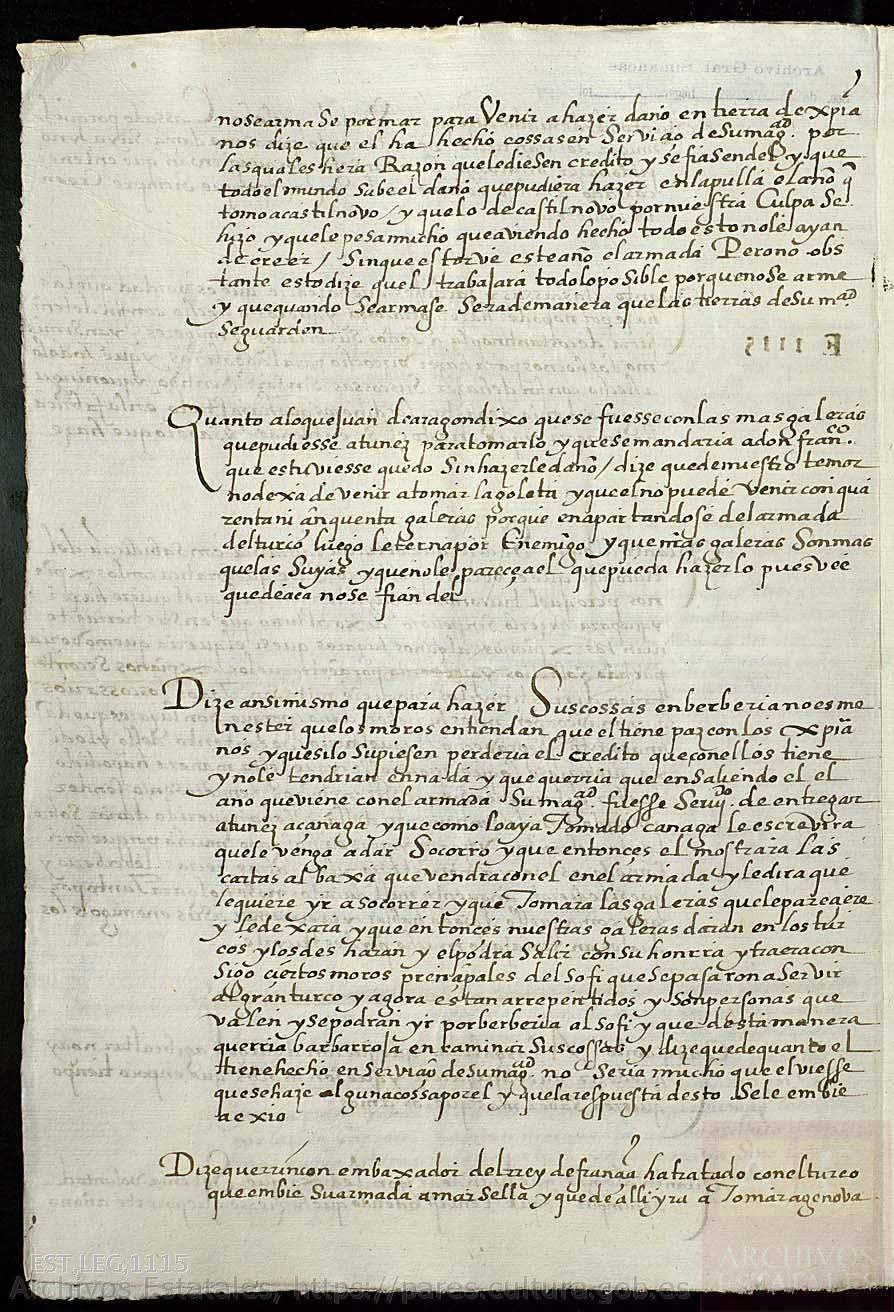 no se arma se por mar para Venir a hazer daño en tierra de xpia
nos dize que el ha hecho cossas en Servicio de Su magd. por
las quales hera Razon que le diesen credito y se fiasen del y que
todo el mundo sabe el daño que pudiera hazer en la pulla el año q
tomo a castilnovo / y que lo de castilnovo por nuestra Culpa Se
hizo y que le pesa mucho que aviendo hecho todo esto no le ayan
de creer / Sin que estorve este año el armada Pero no obs
tante esto dize quel trabajara todo lo posible porque no Se arme
y que quando Se armase Sera de manera que las tierras de Su magd
Se guarden
E 1115
Quanto a lo que Juan de aragon dixo que se fuesse con las mas galeras
que pudiesse a tunez para tomarlo y que se mandaria a don franco.
que estuviesse quedo Sin hazerle daño / dize que de nuestro temor
no dexa de venir a tomar la goleta y que el no puede Venir con qua
renta ni cinquenta galeras porque en apartandose del armada
del turco luego le terna por Enemigo y que nras galeras Son mas
que las Suyas y que no le parece a el que pueda hazerlo pues vee
que de aca no se fian del
Dize ansimismo que para hazer Sus cossas en berberia no es me
nester que los moros entiendan que el tiene paz con los xpia
nos y que si lo Supiesen perderia el credito que con ellos tiene
y no le tendrian en nada y que querria que en Saliendo el el
año que viene con el armada Su magd. fuesse Servydo. de entregar
a tunez a çanaga y que como lo aya Tomado çanaga le escrevira
que le venga a dar Socorro y que entonces el mostrara las
cartas al baxa que vendra con el en el armada y le dira que
le quiere yr a socorrer y que Tomara las galeras que le pareciere
y le dexara y que entonces nuestras galeras daran en los tur
cos y los desharan y el podra Salir con su honrra y traera con
Sigo ciertos moros principales del sofi que se pasaron a Servir
al gran turco y agora estan arrepentidos y son personas que
valen y se podran yr por berberia al sofi y que desta manera
querria barbarroja encaminar Sus cossas y dize que de quanto el
tiene hecho en Servicio de Su magd. no Seria mucho que el viesse
que se haze alguna cossa por el y que la respuesta desto Se le embie
a exio
Dize que rrincon embaxador del rrey de francia ha tratado con el turco
que embie Su armada a marsella y que de alli yra a Tomar a genova
EST,LEG,1115
Archivos Estatales, https://pares.cultura.gob.es